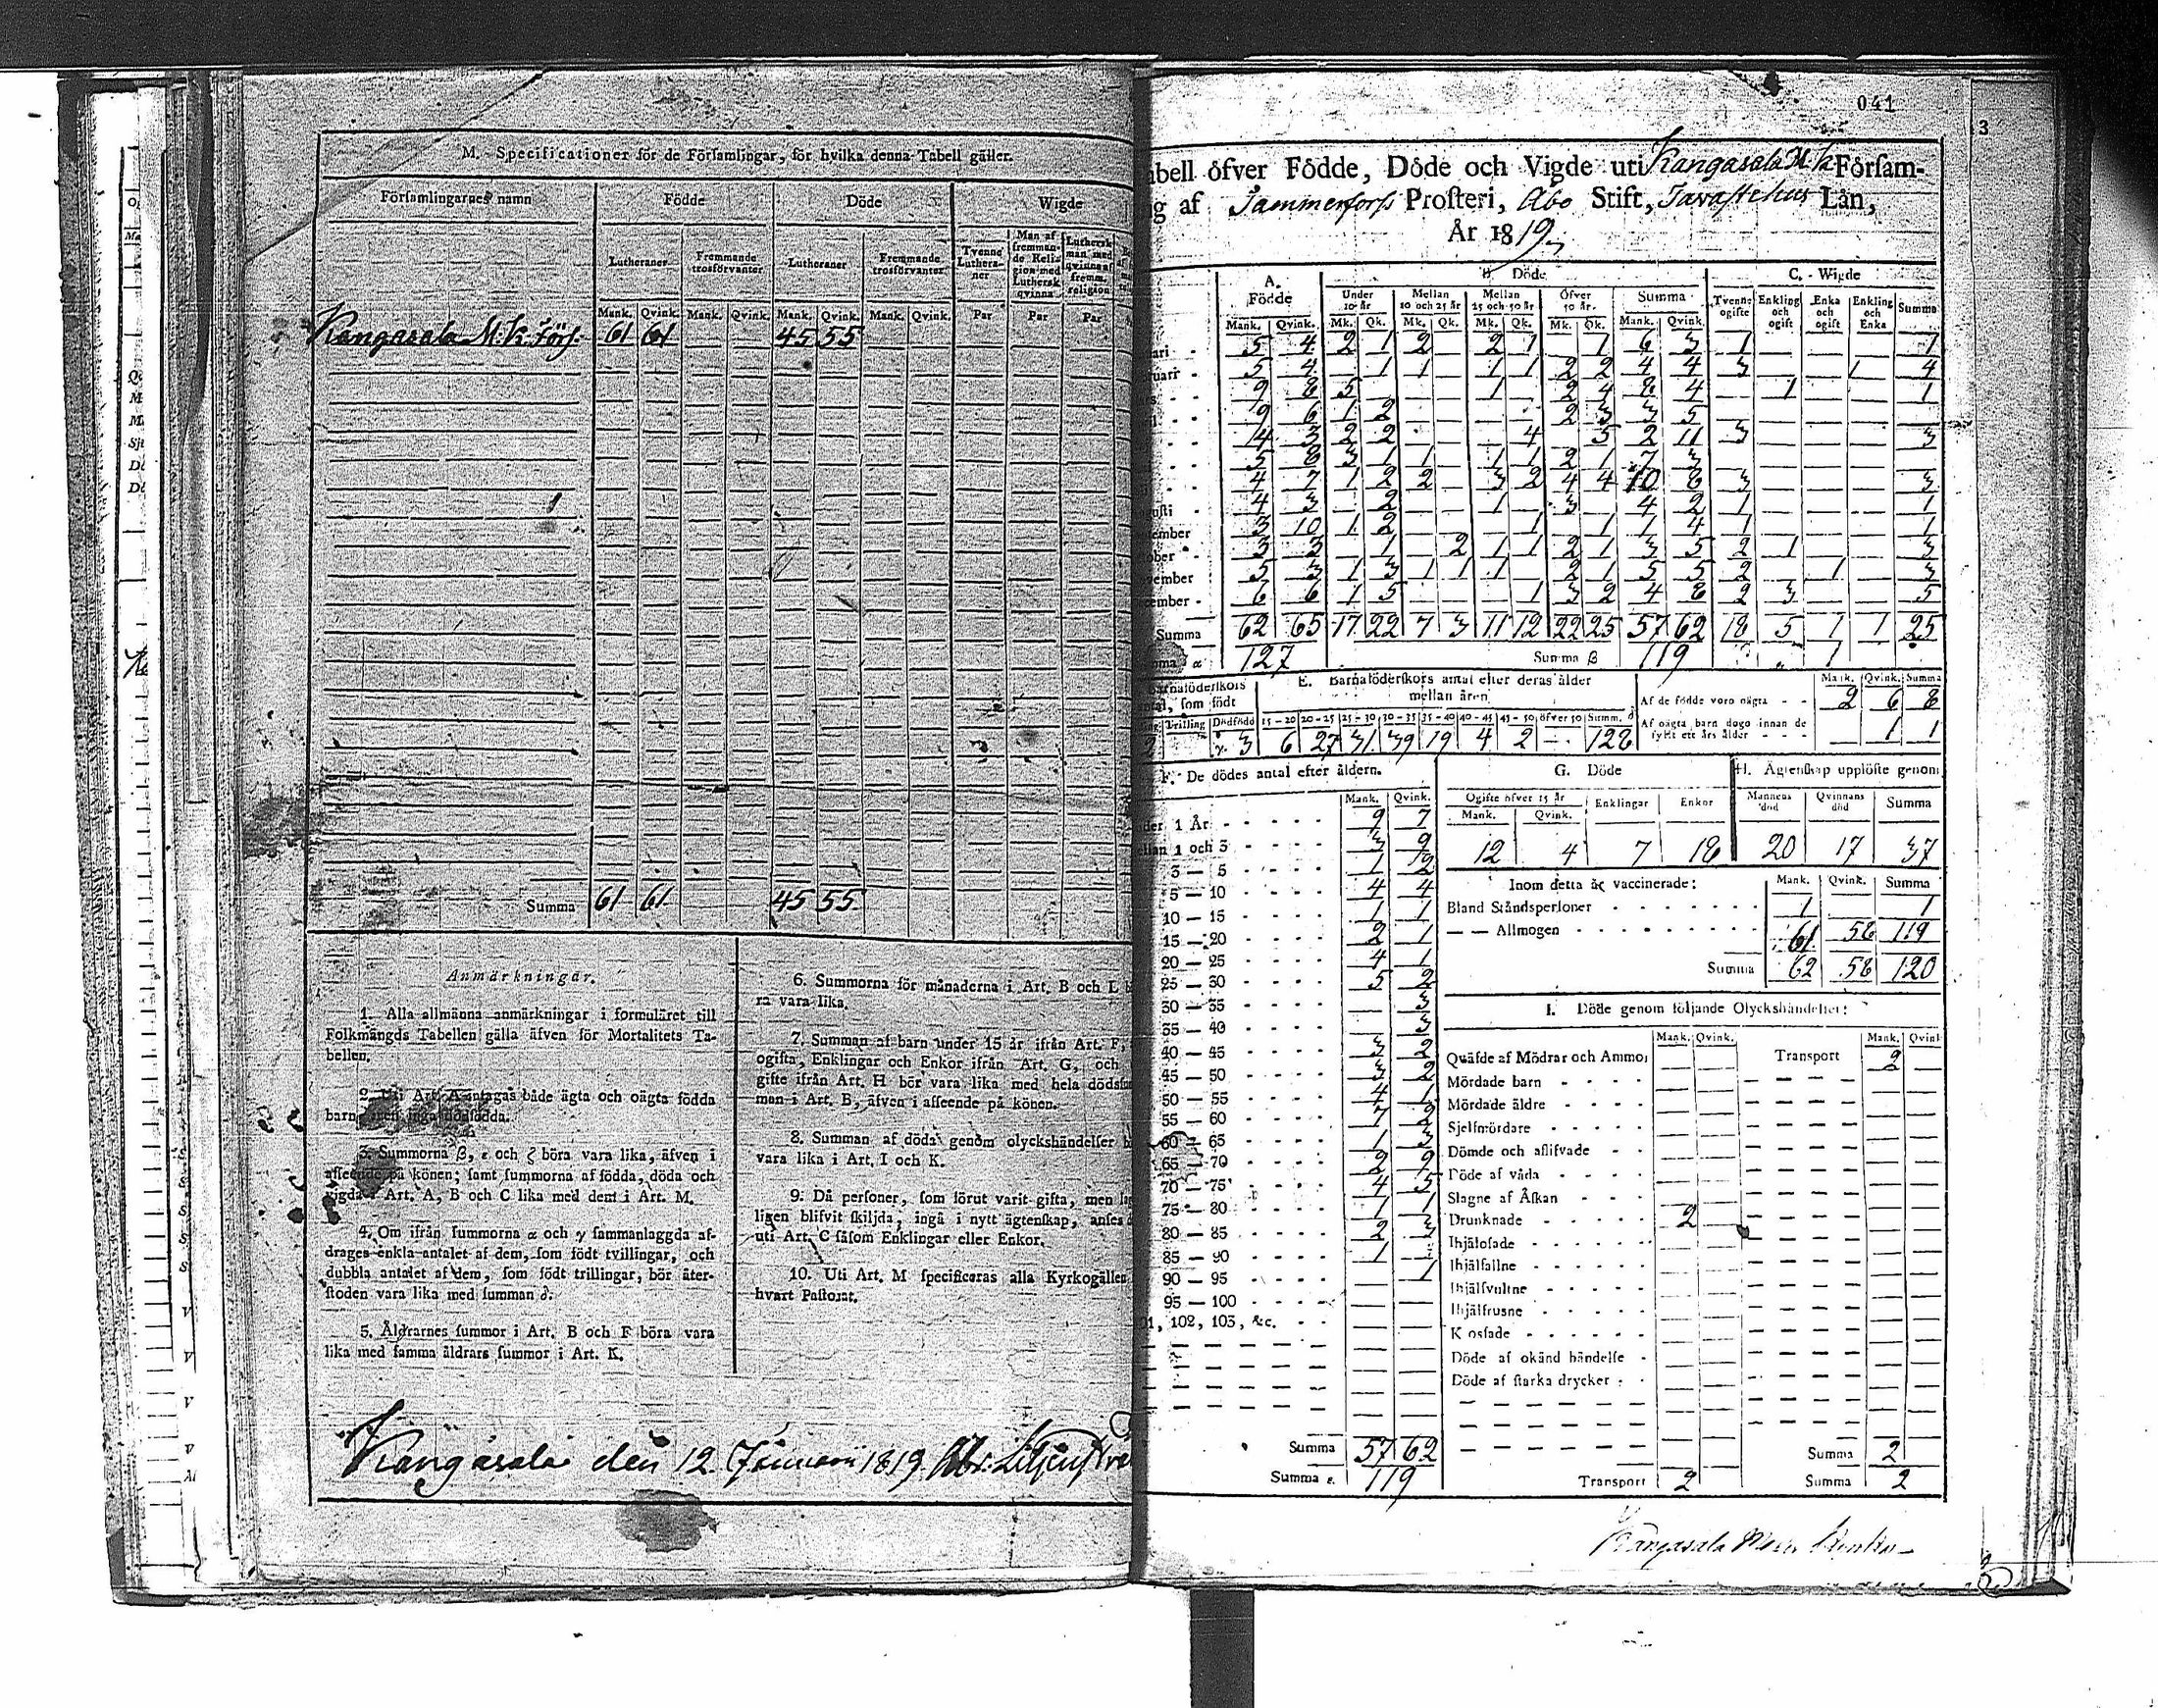 M. Specificationer för de Förſamlingar, för hvilka denna Tabell gäller.
Förſamlingarnes namn Födde Döde Wigde
Lutheraner Fremmande trosförvanter Lutheraner Fremmande trosförvanter Tvenne Lutheraner Man af fremmande Religion med Luthersk qvinna Luthersk man med qvinna af fremm. religion
Mank. Qvink. Mank. Qvink. Mank. Qvink. Mank. Qvink. Par Par Par
Kangasala M. K. förs. 61 61 45 55
Summa 61 61 45 55
Anmärkningar.
1. Alla allmänna anmärkningar i formuläret till
Folkmängds Tabellen gälla äfven för Mortalitets Ta-
bellen.
2. Uti Art. A antagas både ägta och oägta födda
barn, men inga dödfödda.
3. Summorna β, ε och ζ böra vara lika, äfven i
afſeende på könen; ſamt ſummorna af födda, döda och
vigda i Art. A, B och C lika med dem i Art. M.
4. Om ifrån ſummorna α och γ ſammanlaggda af-
drages enkla antalet af dem, ſom födt tvillingar, och
dubbla antalet af dem, ſom födt trillingar, bör åter-
ſtoden vara lika med ſumman δ.
5. Åldrarnes ſummor i Art. B och F böra vara
lika med ſamma åldrars ſummor i Art. K.
6. Summorna för månaderna i Art. B och L b
ra vara lika.
7. Summan af barn under 15 år ifrån Art. F,
ogifta, Enklingar och Enkor ifrån Art. G, och
gifte ifrån Art. H bör vara lika med hela dödsſu
man i Art. B, äfven i afſeende på könen.
8. Summan af döda genom olyckshändelſer b
vara lika i Art. I och K.
9. Då perſoner, ſom förut varit gifta, men la
ligen blifvit ſkiljda, ingå i nytt ägtenſkap, anſes d
uti Art. C ſåſom Enklingar eller Enkor.
10. Uti Art. M ſpecificeras alla Kyrkogällen
hvart Paſtorat.
Kangasala den 12 Januarii 1819.
041
3
abell öfver Födde, Döde och Vigde uti Kangasala M. K. Förſam-
g af Tammerfors Proſteri, Åbo Stift, Tavastehus Län,
År 1819,
A. Födde B. Döde C. Wigde
Under 10 år Mellan 10 och 25 år Mellan 25 och 50 år Öfver 50 år. Summa Tvenne ogifte Enkling och ogift Enka och ogift Enkling och Enka Summa
Mank. Qvink. Mk. Qk. Mk. Qk. Mk. Qk. Mk. Qk. Mank. Qvink.
ari 5 4 2 1 2 2 1 1 6 3 1 1
ruari 5 4 1 1 1 1 2 2 4 4 3 1 4
9 8 5 1 2 4 8 4 1 1
9 6 1 2 2 3 3 5
4 3 2 2 4 5 2 11 3 3
5 8 3 1 1 1 1 2 1 7 3
4 7 1 2 2 3 2 4 4 10 8 3 3
guſti 4 3 2 1 3 4 2 1 1
tember 3 10 1 2 1 1 1 4 1 1
ober 3 3 1 2 1 1 2 1 3 5 2 1 3
vember 5 3 1 3 1 1 1 2 1 5 5 2 1 3
cember 6 6 1 5 1 3 2 4 8 2 3 5
Summa 62 65 17 22 7 3 11 12 22 25 57 62 18 5 1 1 25
α 127 Summa β 119
Barnaföderſkors
antal, ſom födt
Trilling Dödfödd
2 γ. 3
E. Barnaföderſkors antal efter deras ålder
mellan åren
15-20 20-25 25-30 30-35 35-40 40-45 45-50 öfver 50 Summ. δ
6 27 31 39 19 4 2 — 128
Mank. Qvink. Summa
Af de födde voro oägta 2 6 8
Af oägta barn dogo innan de
fyllt ett års ålder 1 1
F. De dödes antal efter åldern.
Mank. Qvink.
der 1 År 9 7
ellan 1 och 3 3 9
3 — 5 1 12
5 — 10 4 4
10 — 15 1 1
15 — 20 2 1
20 — 25 4 1
25 — 30 5 2
30 — 35 3
35 — 40 3
40 — 45 3 2
45 — 50 3 2
50 — 55 4 1
55 — 60 7 2
60 — 65 1 3
65 — 70 2 9
70 — 75 4 5
75 — 80 1 1
80 — 85 2 3
85 — 90 1
90 — 95 1
95 — 100
01, 102, 103, &c.
Summa 57 62
Summa ε. 119
G. Döde
Ogifte öfver 15 år Enklingar Enkor
Mank. Qvink.
12 4 7 18
H. Ägtenſkap upplöſte genom
Mannens död Qvinnans död Summa
20 17 37
Inom detta år vaccinerade: Mank. Qvink. Summa
Bland Ståndsperſoner 1 1
— — Allmogen 61 58 119
Summa 62 58 120
I. Döde genom följande Olyckshändelſer:
Mank. Qvink. Mank. Qvink
Quäfde af Mödrar och Ammor Transport 2
Mördade barn
Mördade äldre
Sjelfmördare
Dömde och aflifvade
Döde af våda
Slagne af Åſkan
Drunknade 2
Ihjälofade
Ihjälfallne
Ihjälſvultne
Ihjälfrusne
K osſade
Döde af okänd händelſe
Döde af ſtarka drycker
Summa 2
Transport 2 Summa 2
Kangasala